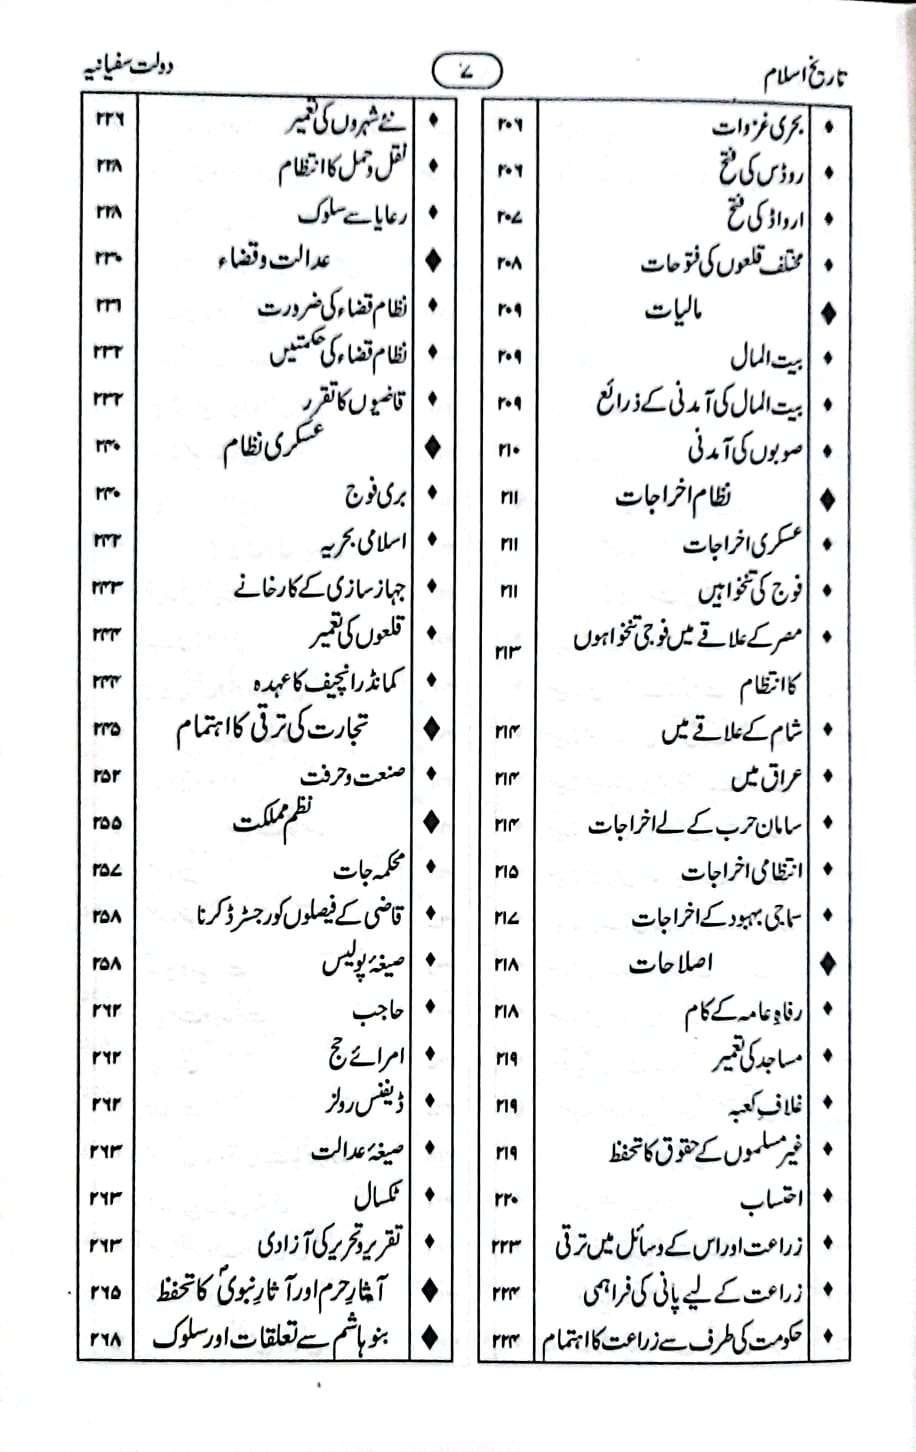 تاریخ اسلام ۷ دولت سفیانیہ
♦ بحری غزوات ۲۰۶
♦ روڈس کی فتح ۲۰۶
♦ ارواڈ کی فتح ۲۰۷
♦ مختلف قلعوں کی فتوحات ۲۰۸
◆ مالیات ۲۰۹
♦ بیت المال ۲۰۹
♦ بیت المال کی آمدنی کے ذرائع ۲۰۹
♦ صوبوں کی آمدنی ۲۱۰
◆ نظام اخراجات ۲۱۱
♦ عسکری اخراجات ۲۱۱
♦ فوج کی تنخواہیں ۲۱۱
♦ مصر کے علاقے میں فوجی تنخواہوں ۲۱۳
کا انتظام
♦ شام کے علاقے میں ۲۱۴
♦ عراق میں ۲۱۴
♦ سامان حرب کے لے اخراجات ۲۱۴
♦ انتظامی اخراجات ۲۱۵
♦ سماجی بہبود کے اخراجات ۲۱۷
◆ اصلاحات ۲۱۸
♦ رفاہِ عامہ کے کام ۲۱۸
♦ مساجد کی تعمیر ۲۱۹
♦ غلافِ کعبہ ۲۱۹
♦ غیر مسلموں کے حقوق کا تحفظ ۲۱۹
♦ احتساب ۲۲۰
♦ زراعت اور اس کے وسائل میں ترقی ۲۲۳
♦ زراعت کے لیے پانی کی فراہمی ۲۲۴
♦ حکومت کی طرف سے زراعت کا اہتمام ۲۲۴
♦ نئے شہروں کی تعمیر ۲۲۶
♦ نقل و حمل کا انتظام ۲۲۸
♦ رعایا سے سلوک ۲۲۸
◆ عدالت و قضاء ۲۳۰
♦ نظام قضاء کی ضرورت ۲۳۱
♦ نظام قضاء کی حکمتیں ۲۳۲
♦ قاضیوں کا تقرر ۲۳۲
◆ عسکری نظام ۲۴۰
♦ بری فوج ۲۴۰
♦ اسلامی بحریہ ۲۴۲
♦ جہاز سازی کے کارخانے ۲۴۳
♦ قلعوں کی تعمیر ۲۴۴
♦ کمانڈر انچیف کا عہدہ ۲۴۴
◆ تجارت کی ترقی کا اہتمام ۲۴۵
♦ صنعت و حرفت ۲۵۲
◆ نظم مملکت ۲۵۵
♦ محکمہ جات ۲۵۷
♦ قاضی کے فیصلوں کو رجسٹرڈ کرنا ۲۵۸
♦ صیغۂ پولیس ۲۵۸
♦ حاجب ۲۶۲
♦ امرائے حج ۲۶۲
♦ ڈیفنس رولز ۲۶۲
♦ صیغۂ عدالت ۲۶۳
♦ ٹکسال ۲۶۳
♦ تقریر و تحریر کی آزادی ۲۶۳
◆ آثارِ حرم اور آثارِ نبویؐ کا تحفظ ۲۶۵
◆ بنو ہاشم سے تعلقات اور سلوک ۲۶۸